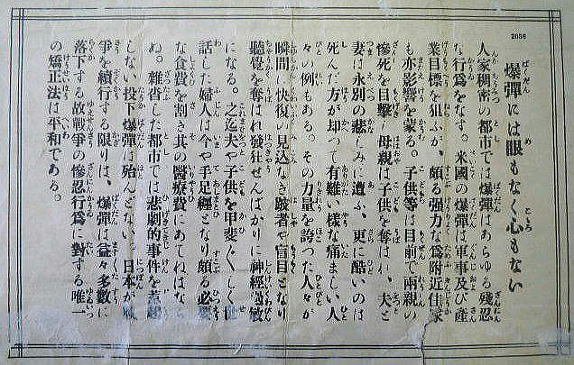 爆彈には眼もなく心もない
人家稠密の都市では爆彈はあらゆる殘忍
な行爲をなす。米國の爆彈は軍事及び産
業目標を狙ふが、頗る强力な爲附近住家
も亦影響を蒙る。子供等は目前で兩親の
慘死を目擊、母親は子供を奪はれ、夫と
妻は永別の悲しみに遭ふ、更に酷いのは
死んだ方が却って有難い樣な痛ましい人
々の例もある。その力量を誇つた人々が
瞬間、快復の見込なき跛者や盲目となり
聽覺を奪はれ發狂せんばかりに神經過敏
になる。之迄夫や子供を甲斐〲しく世
話した婦人は今や手足纏となり頗る必要
な食費を割き其の醫療費にあてねばなら
ぬ。雜沓した都市では悲劇的事件を惹起
しない投下爆彈は殆んどない。日本が戰
爭を續行する限りは、爆彈は益々多數に
落下する故戰爭の慘忍行爲に對する唯一
の矯正法は平和である。